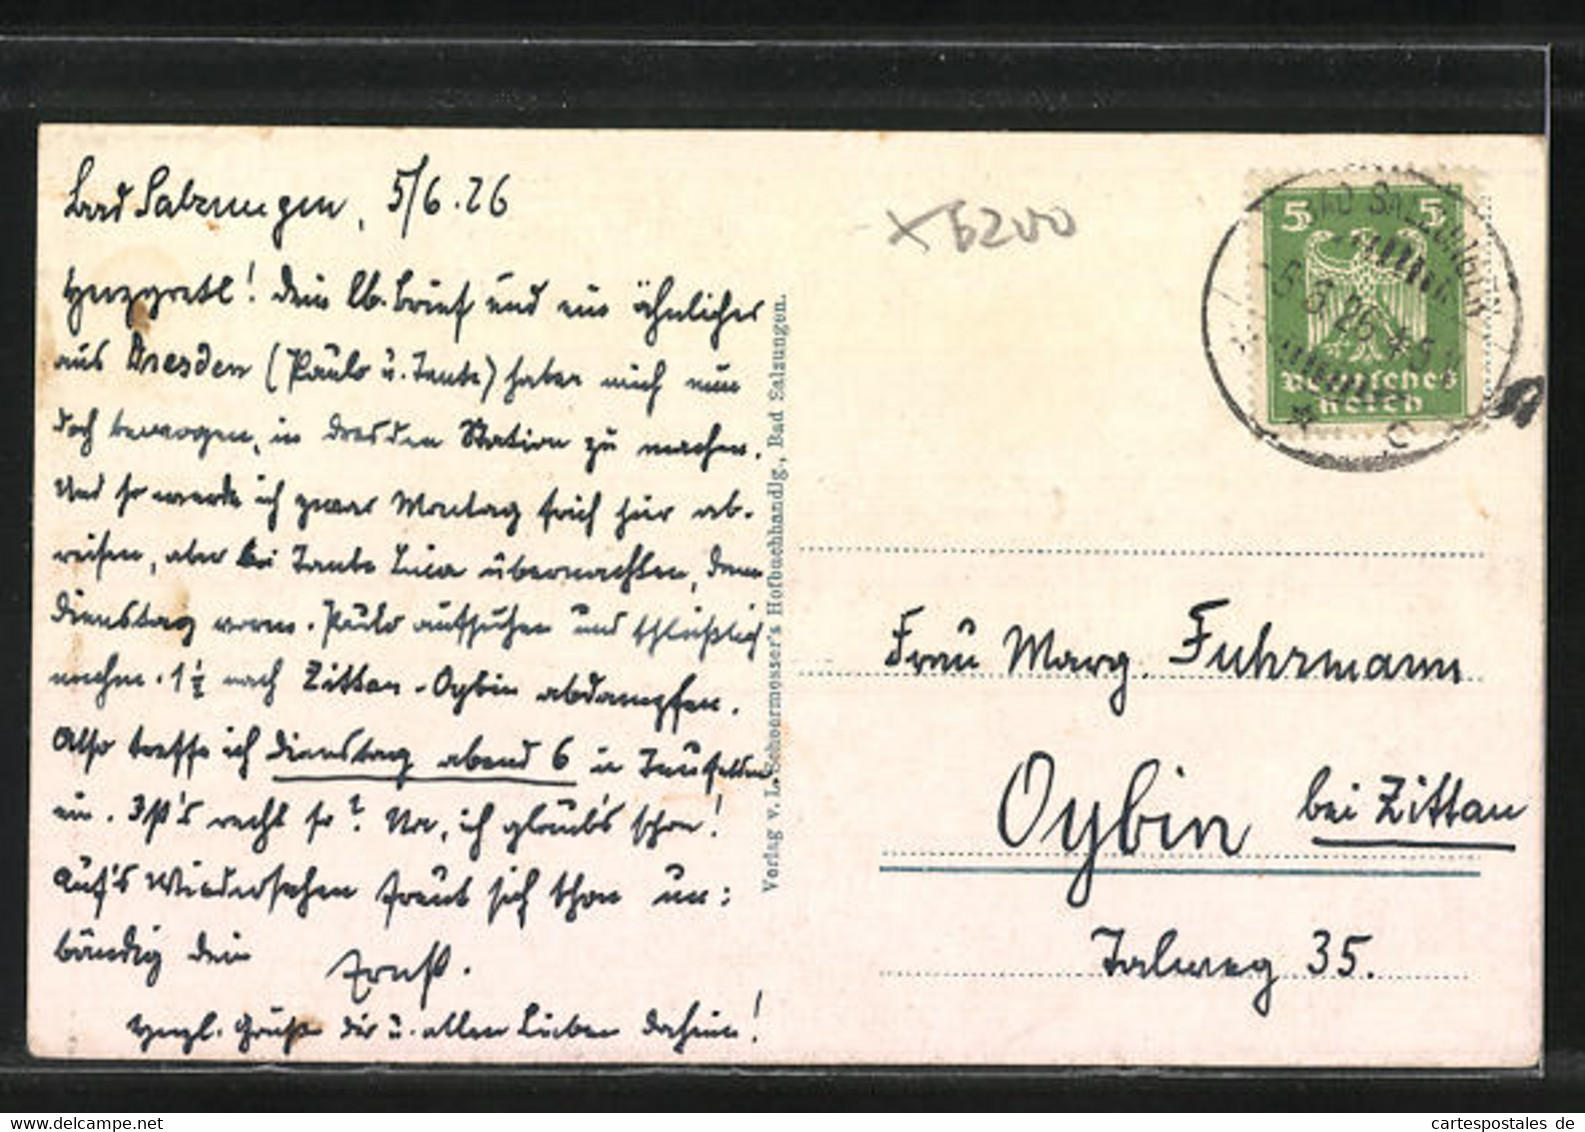 Bad Salzungen, 5/6.26
Herzgretl! Dein lb. Brief und ein ähnlicher
aus Dresden (Paulo u. Tante) haben mich nun
doch bewogen, in Dresden Station zu machen.
Und so werde ich zwar Montag früh hier ab-
reisen, aber bei Tante übernachten, dann
Dienstag vorm. Paulo aufsuchen und schließlich
nachm. 1½ nach Zittau-Oybin abdampfen.
Also treffe ich Dienstag abend 6 in
ein. Ist's recht so? Na, ich glaub's schon!
Auf's Wiedersehen freut sich schon un:
bändig Dein Ernst.
Herzl. Grüße Dir u. allen Lieben daheim!
Verlag v. L. Scheermesser's Hofbuchhandlg., Bad Salzungen.
x 6200
5 5
Deutsches
Reich
BAD SALZUNGEN
5.6.26.4-5
* c
Frau Marg. Fuhrmann
Oybin bei Zittau
Talweg 35.
cartespostales de